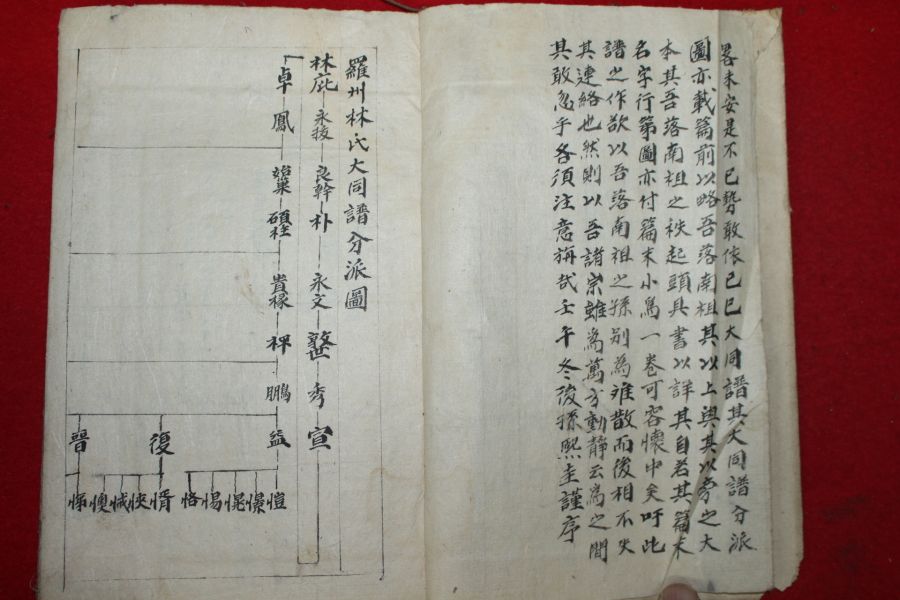 畧未安是不已勢敢依己巳大同譜其大同譜分派
圖亦載篇前以略吾落南祖其以上與其以旁之大
本其吾落南祖之秩起頭具書以詳其自若其篇末
名字行第圖亦付篇末小為一卷可容懷中矣吁此
譜之作欲以吾落南祖之孫別為難散而後相不失
其連絡也然則以吾諸宗雖為萬方動靜云為之間
其敢忽乎各須注意旃哉壬午冬後孫熙圭謹序
羅州林氏大同譜分派圖
林庇 永䅵 良幹 朴 永文 整 秀 宣
卓 鳳 始巢 碩柱 貴椽 稗 鵬 益 復 晉
愷 憬 㤝 惕 恪 㥠 悏 惐 懊 悌